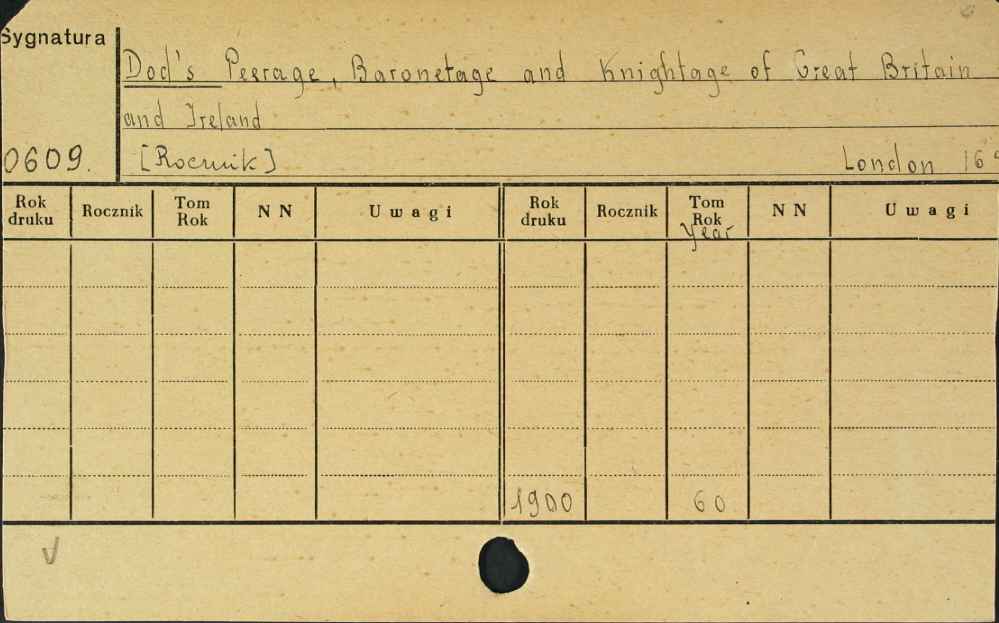 Sygnatura
Dod's Peerage, Baronetage and Knightage of Great Britain
and Ireland
0609.
[Rocznik]
London
Rok druku Rocznik Tom Rok NN Uwagi Rok druku Rocznik Tom Rok NN Uwagi
Year
1900 60